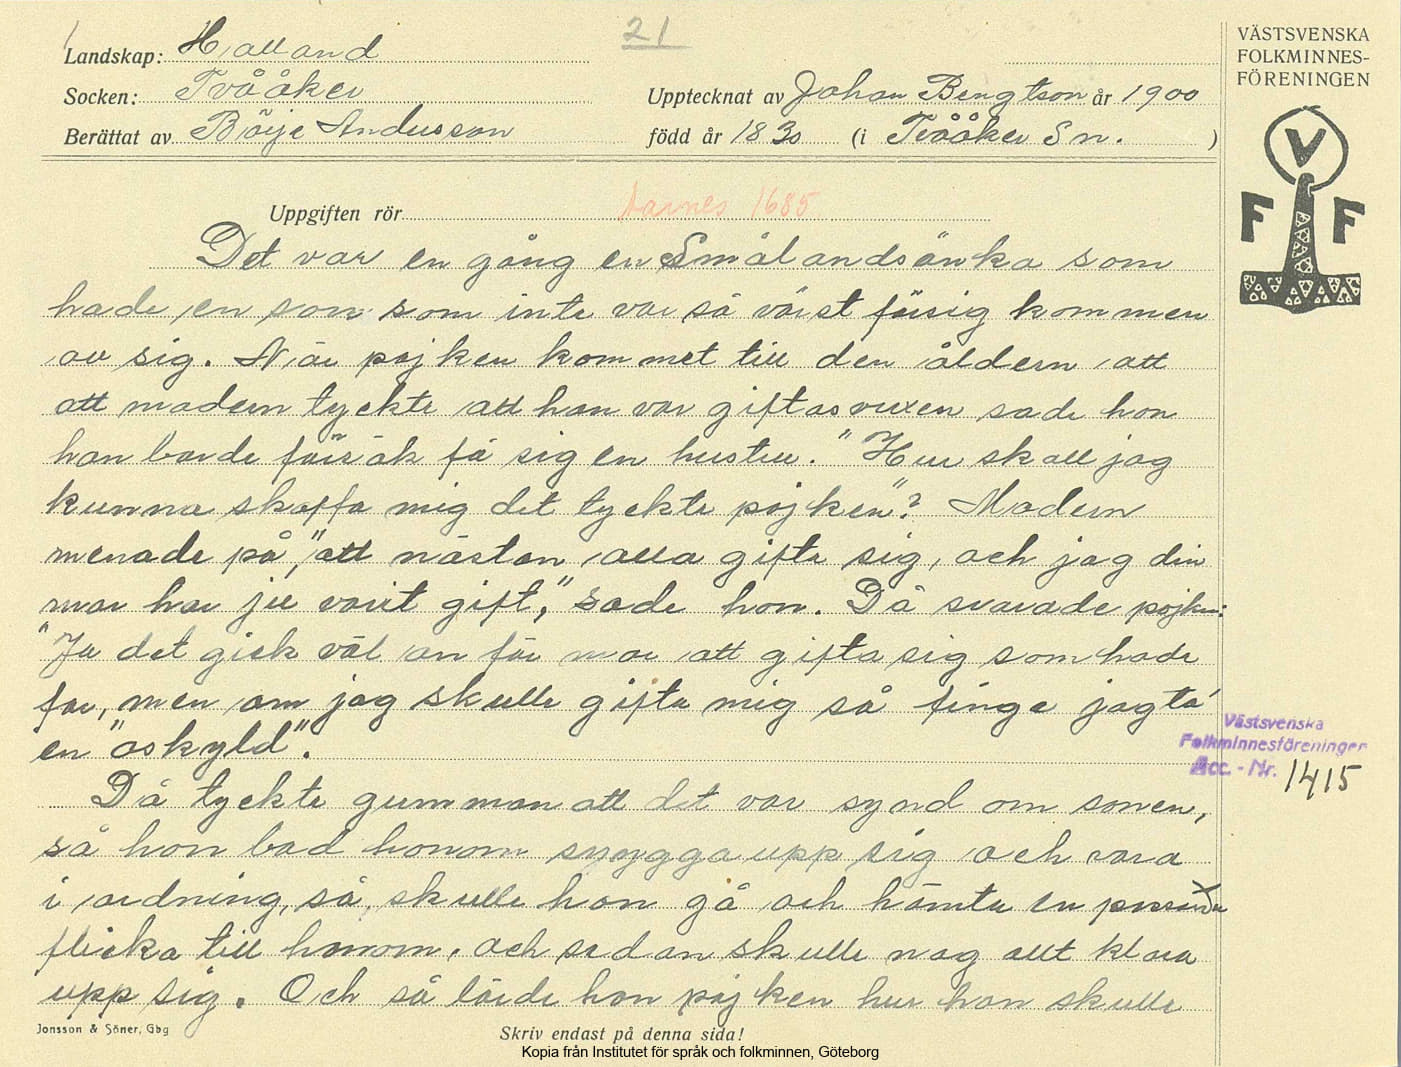 21
Landskap: Halland
Socken: Tvååker
Upptecknat av Johan Bengtson år 1900
Berättat av Börje Andersson
född år 1830 (i Tvååker Sn. )
VÄSTSVENSKA
FOLKMINNES-
FÖRENINGEN
V
F F
Uppgiften rör Aarnes 1685
Det var en gång en Smålandsänka som
hade en son som inte var så värst försig kommen
av sig. När pojken kommet till den åldern att
att modern tyckte att han var giftasvuxen sade hon
han borde försök få sig en hustru. "Hur skall jag
kunna skaffa mig det tyckte pojken"? Modern
menade på, "att nästan alla gifta sig, och jag din
mor har ju varit gift," sade hon. Då svarade pojken:
"Ja det gick väl an för mor att gifta sig som hade
far, men om jag skulle gifta mig så finge jag ta
en "oskyld".
Då tyckte gumman att det var synd om sonen,
så hon bad honom snygga upp sig och vara
i ordning, så skulle hon gå och hämta en
flicka till honom, och sedan skulle nog allt klara
upp sig. Och så lärde hon pojken hur han skulle
Västsvenska
Folkminnesföreningen
Acc. - Nr. 1415
Jonsson & Söner, Gbg
Skriv endast på denna sida!
Kopia från Institutet för språk och folkminnen, Göteborg